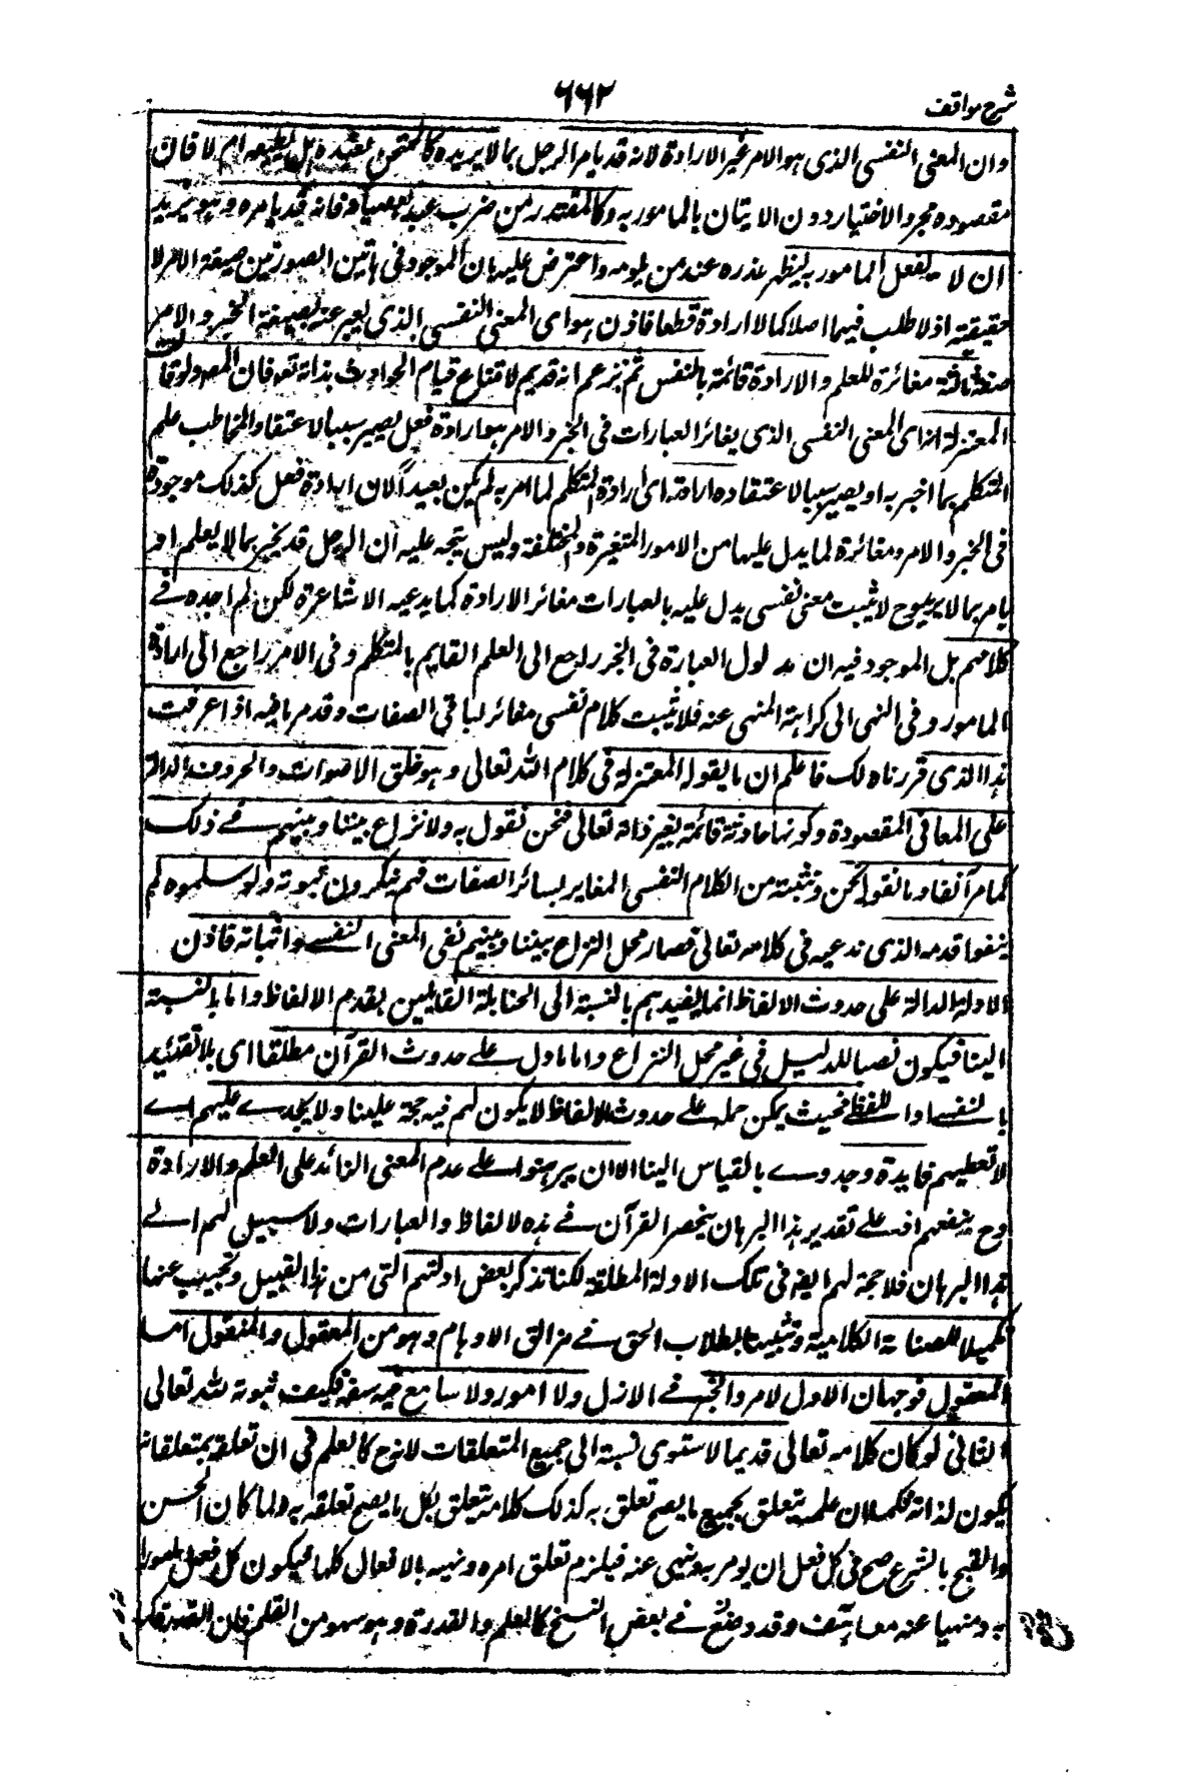 شرح مواقف
٦٦٢
وان المعنى النفسى الذى هو الامر غير الارادة لانه قد يامر الرجل بما لا يريده كالمختبر لعبده هل يطيعه ام لا فان
مقصوده مجرد الاختبار دون الاتيان بالمامور به وكالمعتذر من ضرب عبده بعصيانه فانه قد يامره وهو يريد
ان لا يفعل المامور به ليظهر عذره عند من يلومه واعترض عليه بان الموجود فى هاتين الصورتين صيغة الامر لا
حقيقته اذ لا طلب فيهما اصلا كما لا ارادة قطعا فاذن هو اى المعنى النفسى الذى يعبر عنه بصيغة الخبر والامر
صفة ثالثة مغائرة للعلم والارادة قائمة بالنفس ثم نزعم انه قديم لامتناع قيام الحوادث بذاته تع فان المصـ ولو قا
المعتزلة انه اى المعنى النفسى الذى يغائر العبارات فى الخبر والامر هو ارادة فعل يصير سببا لاعتقاد المخاطب علم
المتكلم بما اخبر به او يصير سببا لاعتقاده ارادته اى ارادة المتكلم لما امر به لم يكن بعيدا لان ارادة فعل كذلك موجودة
فى الخبر والامر ومغائرة لما يدل عليها من الامور المتغيرة والمختلفة وليس يتجه عليه ان الرجل قد يخبر بما لا يعلم او
يامر بما لا يريد وح لا يثبت معنى نفسى يدل عليه بالعبارات مغائر الارادة كما يدعيه الاشاعرة لكن لم اجده فے
كلامهم بل الموجود فيه ان مدلول العبارة فى الخبر راجع الى العلم القايم بالمتكلم وفى الامر راجع الى ارادة
المامور وفى النهى الى كراهة المنهى عنه فلا يثبت كلام نفسى مغائر لباقى الصفات وقد مر ما فيه اذا عرفت
هذا الذى قررناه لك فاعلم ان ما يقوله المعتزلة فى كلام الله تعالى وهو خلق الاصوات والحروف الدالة
على المعانى المقصودة وكونها حادثة قائمة بغير ذاته تعالى فنحن نقول به ولا نزاع بيننا وبينهم فے ذلك
كما مر آنفا وما نقوله نحن ونثبته من الكلام النفسى المغاير لسائر الصفات فهم ينكرون ثبوته ولو سلموه لم
ينفوا قدمه الذى ندعيه فى كلامه تعالى فصار محل النزاع بيننا وبينهم نفى المعنى النفسے واثباته فاذن
الادلة الدالة على حدوث الالفاظ انما يفيدهم بالنسبة الى الحنابلة القايلين بقدم الالفاظ واما بالنسبة
الينا فيكون نصبا للدليل فى غير محل النزاع واما ما دل علے حدوث القرآن مطلقا اى بلا تقئيد
بالنفسے او اللفظے فحيث يمكن حمله علے حدوث الالفاظ لا يكون لهم فيه حجة علينا ولا يجدے عليهم اے
لا تعطيهم فايدة وجدوے بالقياس الينا الا ان يبرهنوا علے عدم المعنى الزائد على العلم والارادة
وح ينفعهم اذ علے تقدير هذا البرهان ينحصر القرآن فے هذه الالفاظ والعبارات ولا سبيل لهم الے
هذا البرهان فلا حجة لهم ايضه فى تلك الادلة المطلقة لكنا نذكر بعض ادلتهم التى من هذا القبيل ونجيب عنها
تكميلا للصناعة الكلامية وتثبيتا لطلاب الحق فے مزالق الاوهام وهو من المعقول والمنقول اما
المعقول فوجهان الاول الامر والخبر فے الازل ولا مامور ولا سامع فيه سفه فكيف ثبوته لله تعالى
الثانى لو كان كلامه تعالى قديما لاستوى نسبته الى جميع المتعلقات لانه ح كالعلم فى ان تعلقه بمتعلقاته
يكون لذاته فكما ان علمه يتعلق بجميع ما يصح تعلقه به كذلك كلامه يتعلق بكل ما يصح تعلقه به ولما كان الحسن
والقبح بالشرع صح فى كل فعل ان يومر به وينهى عنه فيلزم تعلق امره ونهيه بالافعال كلها فيكون كل فعل مامورا
به ومنهيا عنه معا هف وقد وضع فے بعض النسخ كالعلم والقدرة وهو سهو من القلم فان القدرة